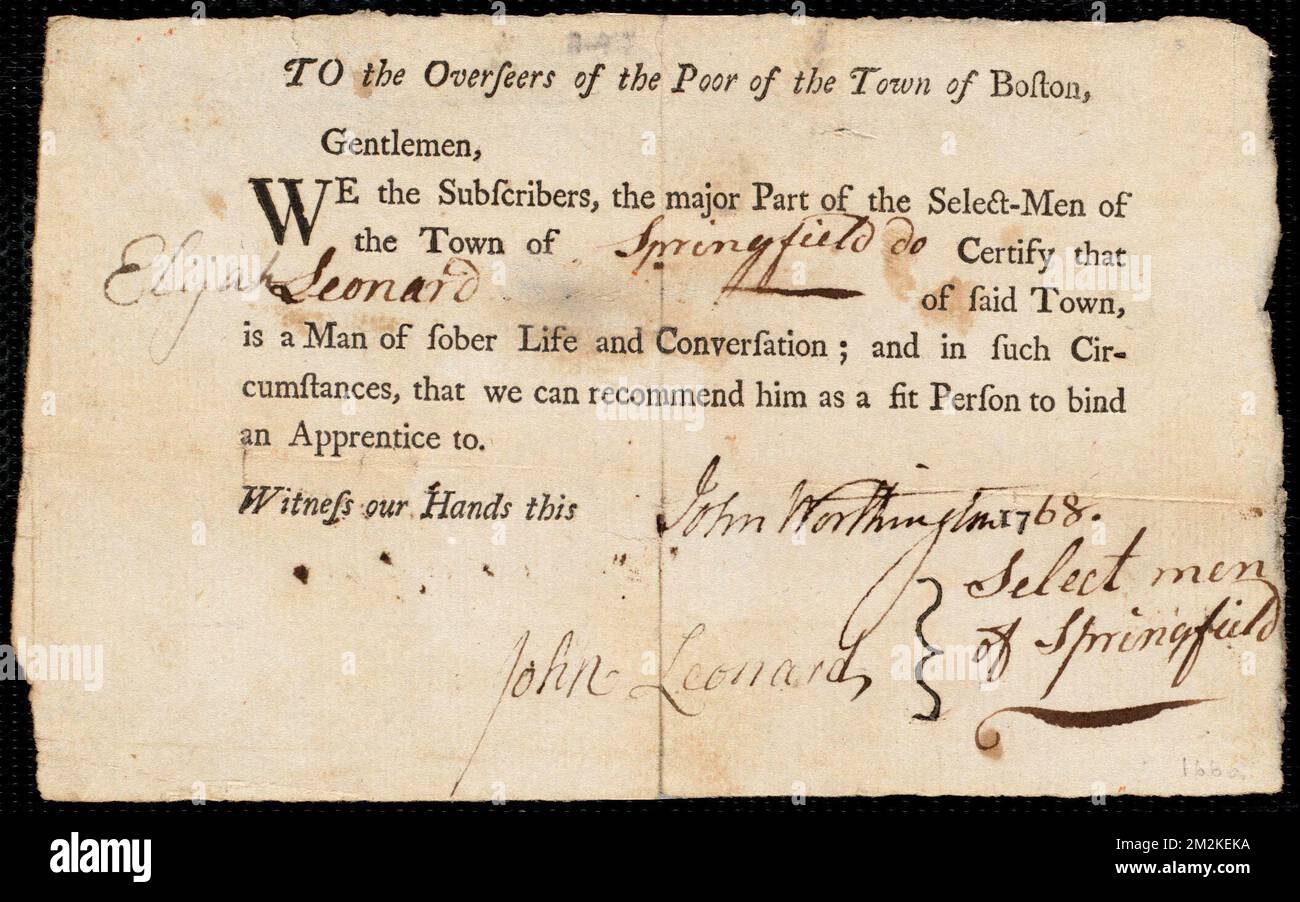 TO the Overſeers of the Poor of the Town of Boſton,
Gentlemen,
WE the Subſcribers, the major Part of the Select-Men of
the Town of Springfield do Certify that
Elijah Leonard of ſaid Town,
is a Man of ſober Life and Converſation; and in ſuch Cir-
cumſtances, that we can recommend him as a fit Perſon to bind
an Apprentice to.
Witneſs our Hands this John Worthington 1768.
Select men
of Springfield
John Leonard
a alamy
alamy
Image ID: 2M2KEKA
www.alamy.com